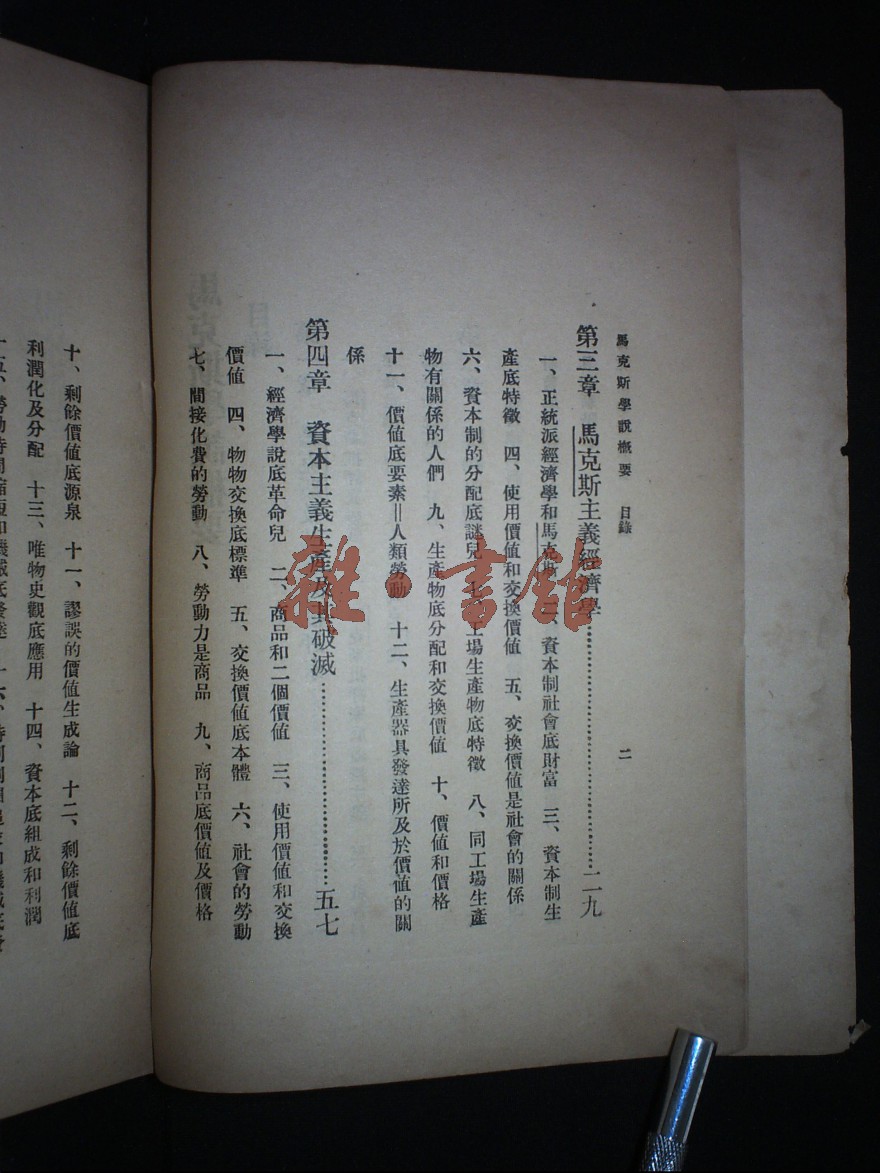 馬克斯學說概要　目錄　二
第三章　馬克斯主義經濟學…………二九
一、正統派經濟學和馬克斯　二、資本制社會底財富　三、資本制生
產底特徵　四、使用價值和交換價值　五、交換價值是社會的關係
六、資本制的分配底謎兒　七、工場生產物底特徵　八、同工場生產
物有關係的人們　九、生產物底分配和交換價值　十、價值和價格
十一、價值底要素＝人類勞動　十二、生產器具發達所及於價值的關
係
第四章　資本主義生產及其破滅…………五七
一、經濟學說底革命兒　二、商品和二個價值　三、使用價值和交換
價值　四、物物交換底標準　五、交換價值底本體　六、社會的勞動
七、間接化費的勞動　八、勞動力是商品　九、商品底價值及價格
十、剩餘價值底源泉　十一、謬誤的價值生成論　十二、剩餘價值底
利潤化及分配　十三、唯物史觀底應用　十四、資本底組成和利潤
雜·書館